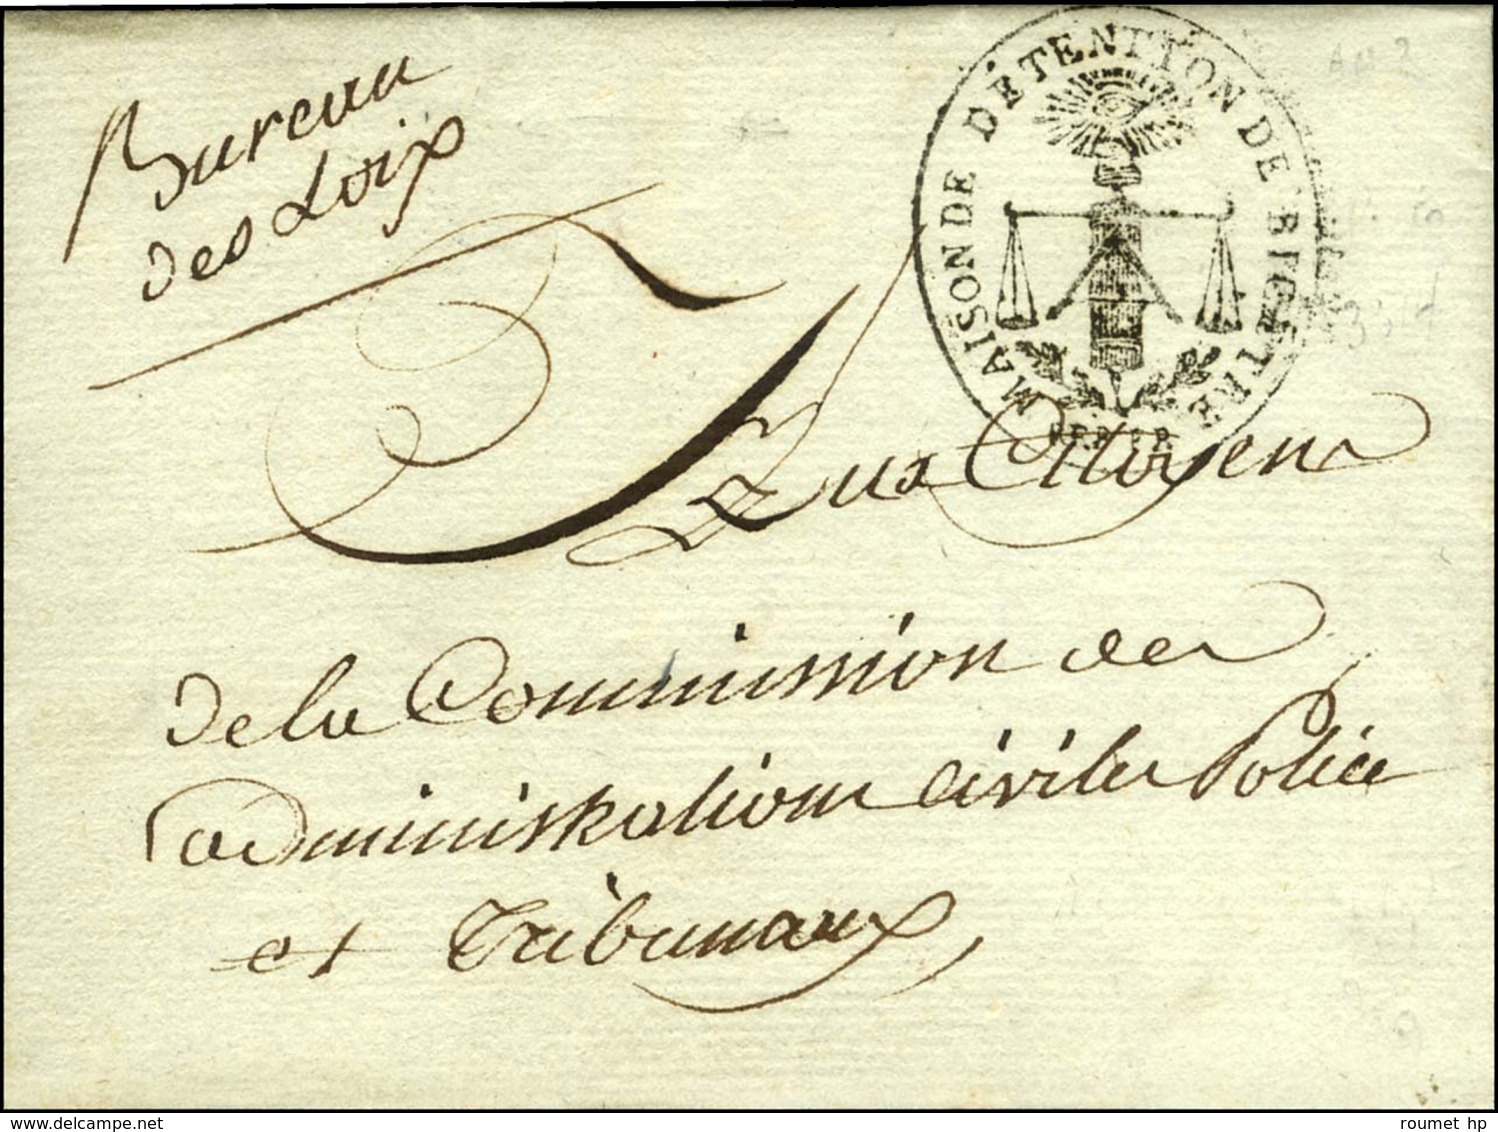 Bureau
des Loix
MAISON DE DÉTENTION DE BICÊTRE
Aux Citoyens
de la Commission des
administrations civiles Police
et Tribunaux,
An 2
delcampe.net
roumet hp